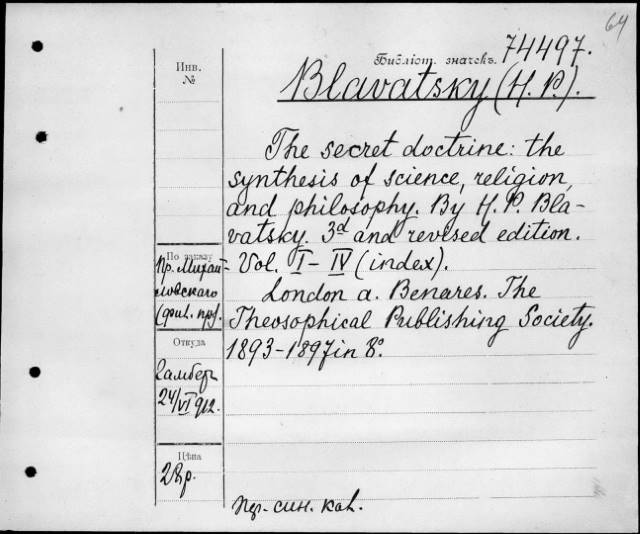 64
Библіот. значекъ. 74497.
Blavatsky (H. P.).
Инв.
№
The secret doctrine: the
synthesis of science, religion,
and philosophy. By H. P. Bla-
vatsky. 3d and revised edition.
Vol. I – IV (index).
London a. Benares. The
Theosophical Publishing Society.
1893–1897 in 8°.
По заказу
Пр. Михай-
ловскаго
Откуда
24/VI 912.
Цѣна
28 р.
син. каб.